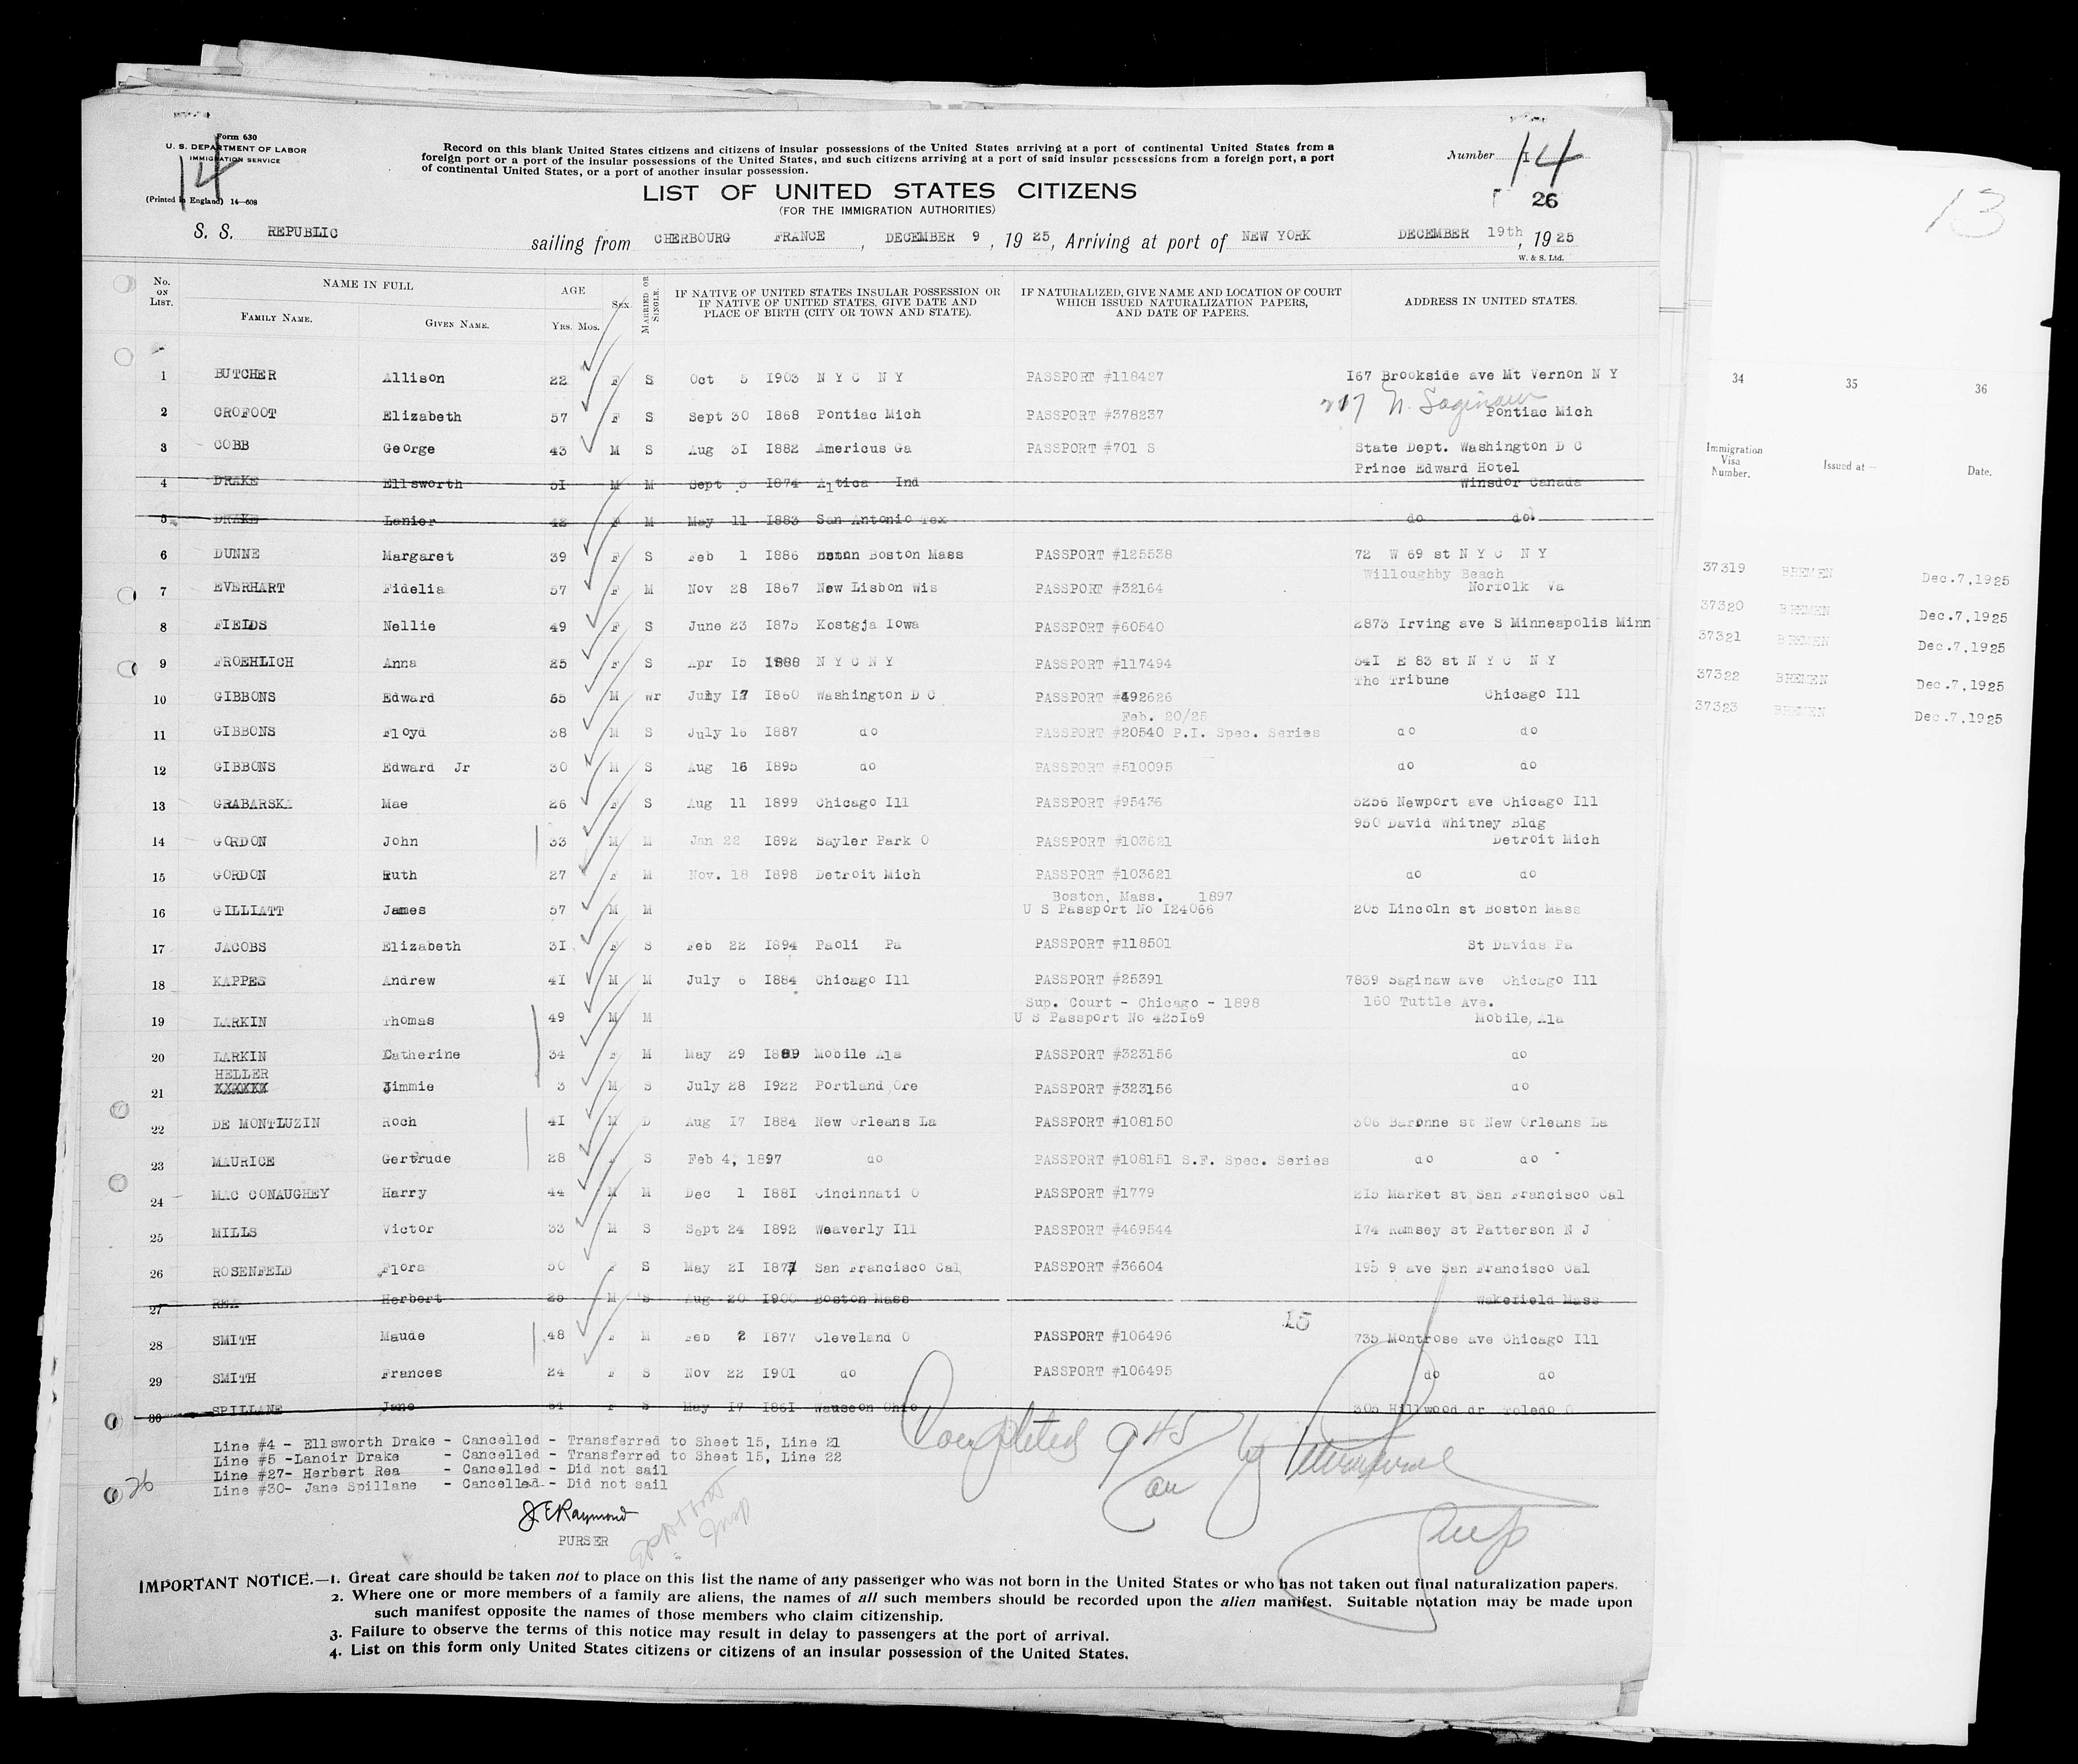 Form 630
U. S. DEPARTMENT OF LABOR
IMMIGRATION SERVICE
14
(Printed in England) 14—608
Record on this blank United States citizens and citizens of insular possessions of the United States arriving at a port of continental United States from a
foreign port or a port of the insular possessions of the United States, and such citizens arriving at a port of said insular possessions from a foreign port, a port
of continental United States, or a port of another insular possession.
Number 14
26
LIST OF UNITED STATES CITIZENS
(FOR THE IMMIGRATION AUTHORITIES)
S. S. REPUBLIC sailing from CHERBOURG FRANCE, DECEMBER 9, 19 25, Arriving at port of NEW YORK DECEMBER 19th, 19 25
W. & S. Ltd.
No. ON LIST. NAME IN FULL AGE SEX MARRIED OR SINGLE. IF NATIVE OF UNITED STATES INSULAR POSSESSION OR IF NATIVE OF UNITED STATES, GIVE DATE AND PLACE OF BIRTH (CITY OR TOWN AND STATE). IF NATURALIZED, GIVE NAME AND LOCATION OF COURT WHICH ISSUED NATURALIZATION PAPERS, AND DATE OF PAPERS. ADDRESS IN UNITED STATES.
FAMILY NAME. GIVEN NAME. YRS. MOS.
1 BUTCHER Allison 22 F S Oct 5 I903 N Y C N Y PASSPORT #118427 I67 Brookside ave Mt Vernon N Y
2 CROFOOT Elizabeth 57 F S Sept 30 I868 Pontiac Mich PASSPORT #378237 217 N. Saginaw Pontiac Mich
3 COBB George 43 M S Aug 3I I882 Americus Ga PASSPORT #701 S State Dept. Washington D C
Prince Edward Hotel
4 DRAKE Ellsworth 5I M M Sept 5 I874 Attica Ind Winsdor Canada
5 DRAKE Lanior 42 F M May 11 I883 San Antonio Tex do do
6 DUNNE Margaret 39 F S Feb 1 I886 Boston Mass PASSPORT #125538 72 W 69 st N Y C N Y
Willoughby Beach
7 EVERHART Fidelia 57 F M Nov 28 I867 New Lisbon Wis PASSPORT #32164 Norfolk Va
8 FIELDS Nellie 49 F S June 23 I875 Kostgja Iowa PASSPORT #60540 2873 Irving ave S Minneapolis Minn
9 FROEHLICH Anna 25 F S Apr I5 N Y C N Y PASSPORT #117494 54I E 83 st N Y C N Y
The Tribune
10 GIBBONS Edward 65 M wr July I7 I860 Washington D C PASSPORT #492626 Chicago Ill
Feb. 20/25
11 GIBBONS Floyd 38 M S July 16 I887 do PASSPORT #20540 P.I. Spec. Series do do
12 GIBBONS Edward Jr 30 M S Aug 16 I895 do PASSPORT #510095 do do
13 GRABARSKA Mae 26 F S Aug 11 I899 Chicago Ill PASSPORT #95436 5256 Newport ave Chicago Ill
950 David Whitney Bldg
14 GORDON John 33 M M Jan 22 I892 Sayler Park O PASSPORT #103621 Detroit Mich
15 GORDON Ruth 27 F M Nov. 18 I898 Detroit Mich PASSPORT #103621 do do
Boston, Mass. 1897
16 GILLIATT James 57 M M U S Passport No I24066 205 Lincoln st Boston Mass
17 JACOBS Elizabeth 3I F S Feb 22 I894 Paoli Pa PASSPORT #118501 St Davids Pa
18 KAPPES Andrew 4I M M July 6 I884 Chicago Ill PASSPORT #25391 7839 Saginaw ave Chicago Ill
Sup. Court - Chicago - 1898 160 Tuttle Ave.
19 LARKIN Thomas 49 M M U S Passport No 425I69 Mobile, Ala
20 LARKIN Catherine 34 F M May 29 I889 Mobile Ala PASSPORT #323156 do
HELLER
21 XXXXXX Jimmie 3 M S July 28 I922 Portland Ore PASSPORT #323156 do
22 DE MONTLUZIN Roch 4I M D Aug I7 I884 New Orleans La PASSPORT #108150 306 Baronne st New Orleans La
23 MAURICE Gertrude 28 F S Feb 4, 1897 do PASSPORT #108151 S.F. Spec. Series do do
24 MAC CONAUGHEY Harry 44 M M Dec 1 I88I Cincinnati O PASSPORT #1779 2I5 Market st San Francisco Cal
25 MILLS Victor 33 M S Sept 24 I892 Weaverly Ill PASSPORT #469544 I74 Ramsey st Patterson N J
26 ROSENFELD Flora 50 F S May 2I San Francisco Cal PASSPORT #36604 I95 9 ave San Francisco Cal
27 REA Herbert 25 M S Aug 20 I900 Boston Mass Wakefield Mass
15
28 SMITH Maude 48 F M Feb 2 I877 Cleveland O PASSPORT #106496 735 Montrose ave Chicago Ill
29 SMITH Frances 24 F S Nov 22 I901 do PASSPORT #106495 do do
30 SPILLANE Jane 64 F S May I7 I86I Wauseon Ohio 305 Hillwood dr Toledo O
Line #4 - Ellsworth Drake - Cancelled - Transferred to Sheet 15, Line 21
Line #5 -Lanoir Drake - Cancelled - Transferred to Sheet 15, Line 22
Line #27- Herbert Rea - Cancelled - Did not sail
Line #30- Jane Spillane - Cancelled - Did not sail
26
Completed 9 45 am by
Insp
J E Raymond
PURSER
Insp
IMPORTANT NOTICE.—1. Great care should be taken not to place on this list the name of any passenger who was not born in the United States or who has not taken out final naturalization papers.
2. Where one or more members of a family are aliens, the names of all such members should be recorded upon the alien manifest. Suitable notation may be made upon
such manifest opposite the names of those members who claim citizenship.
3. Failure to observe the terms of this notice may result in delay to passengers at the port of arrival.
4. List on this form only United States citizens or citizens of an insular possession of the United States.
13
34 35 36
Immigration Visa Number. Issued at— Date.
37319 BREMEN Dec.7,1925
37320 BREMEN Dec.7,1925
37321 BREMEN Dec.7,1925
37322 BREMEN Dec.7,1925
37323 BREMEN Dec.7,1925